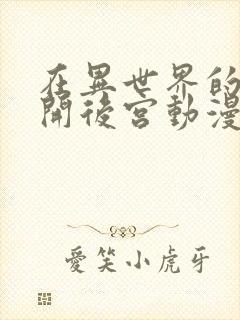 在異世界的
開後宮動漫
愛笑小虎牙